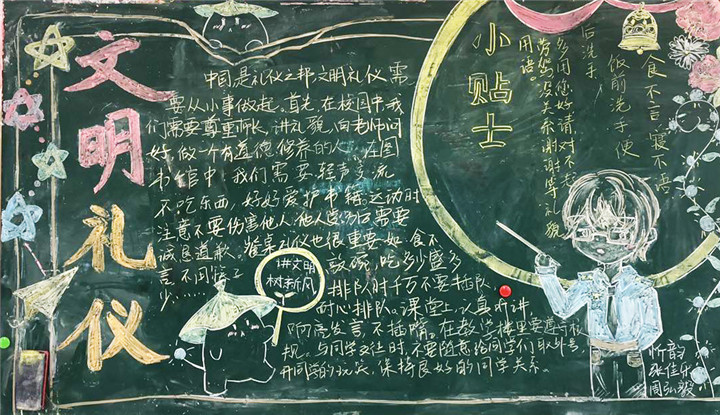 文明礼仪
中国是礼仪之邦,文明礼仪需
要从小事做起。首先,在校园中我
们需要尊重师长,讲礼貌,向老师问
好,做一个有道德、修养的人。在图
书馆中,我们需要轻声交流,
不吃东西,好好爱护书籍。运动时
注意不要伤害他人,他人受伤后需要
诚恳道歉。餐桌礼仪也很重要,如食不
言,不用筷子
敲碗,吃多少盛多
少……
排队时千万不要插队,
耐心排队。课堂上,认真听讲,
发言,不插嘴。在教学楼里要遵守校
规。与同学交往时,不要随意给同学们取外号,
开同学的玩笑,保持良好的同学关系。
讲文明
树新风
小贴士
食不言,寝不语
饭前洗手,便
后洗手
多用您好、请、对不起、
没关系、谢谢等礼貌
用语
昕韵
张佳乐
周弘毅